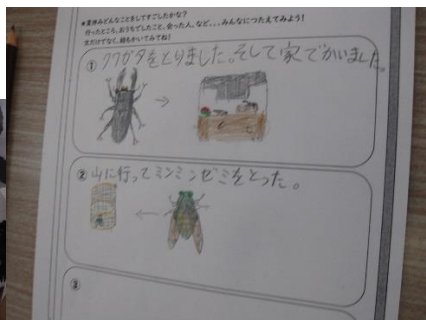 ★夏休みどんなことをしてすごしたかな?
行ったところ、おうちでしたこと、会った人、など...みんなにつたえてみよう!
文だけでなく、絵もかいてみてね!
① クワガタをとりました。そして家でかいました。
② 山に行ってミンミンゼミをとった。
③